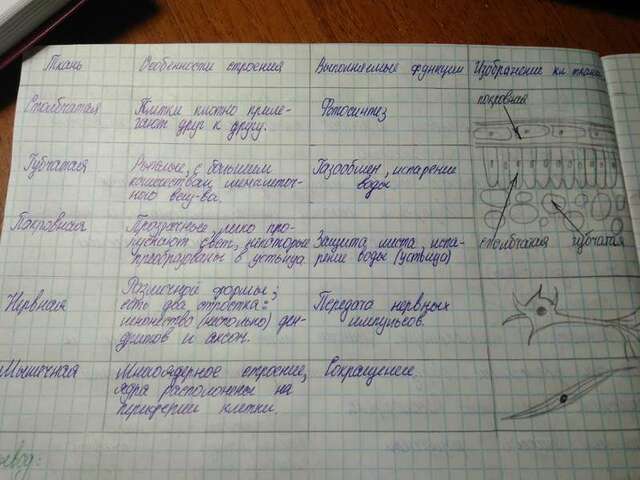 Ткань Особенности строения Выполняемые функции Изображение кл. ткани
Столбчатая Клетки плотно приле- Фотосинтез
гают друг к другу.
покровная
Губчатая Рыхлые, с большим Газообмен, испарение
количеством межклеточ- воды
ного вещ-ва.
Покровная Прозрачные, легко про-
пускают свет, некоторые Защита листа, испа-
преобразованы в устьица рение воды (устьица)
столбчатая губчатая
Нервная Различной формы;
есть два отростка: Передача нервных
множество (несколько) ден- импульсов.
дритов и аксон.
Мышечная Многоядерное строение, Сокращение.
ядра расположены на
периферии клетки.
вывод: